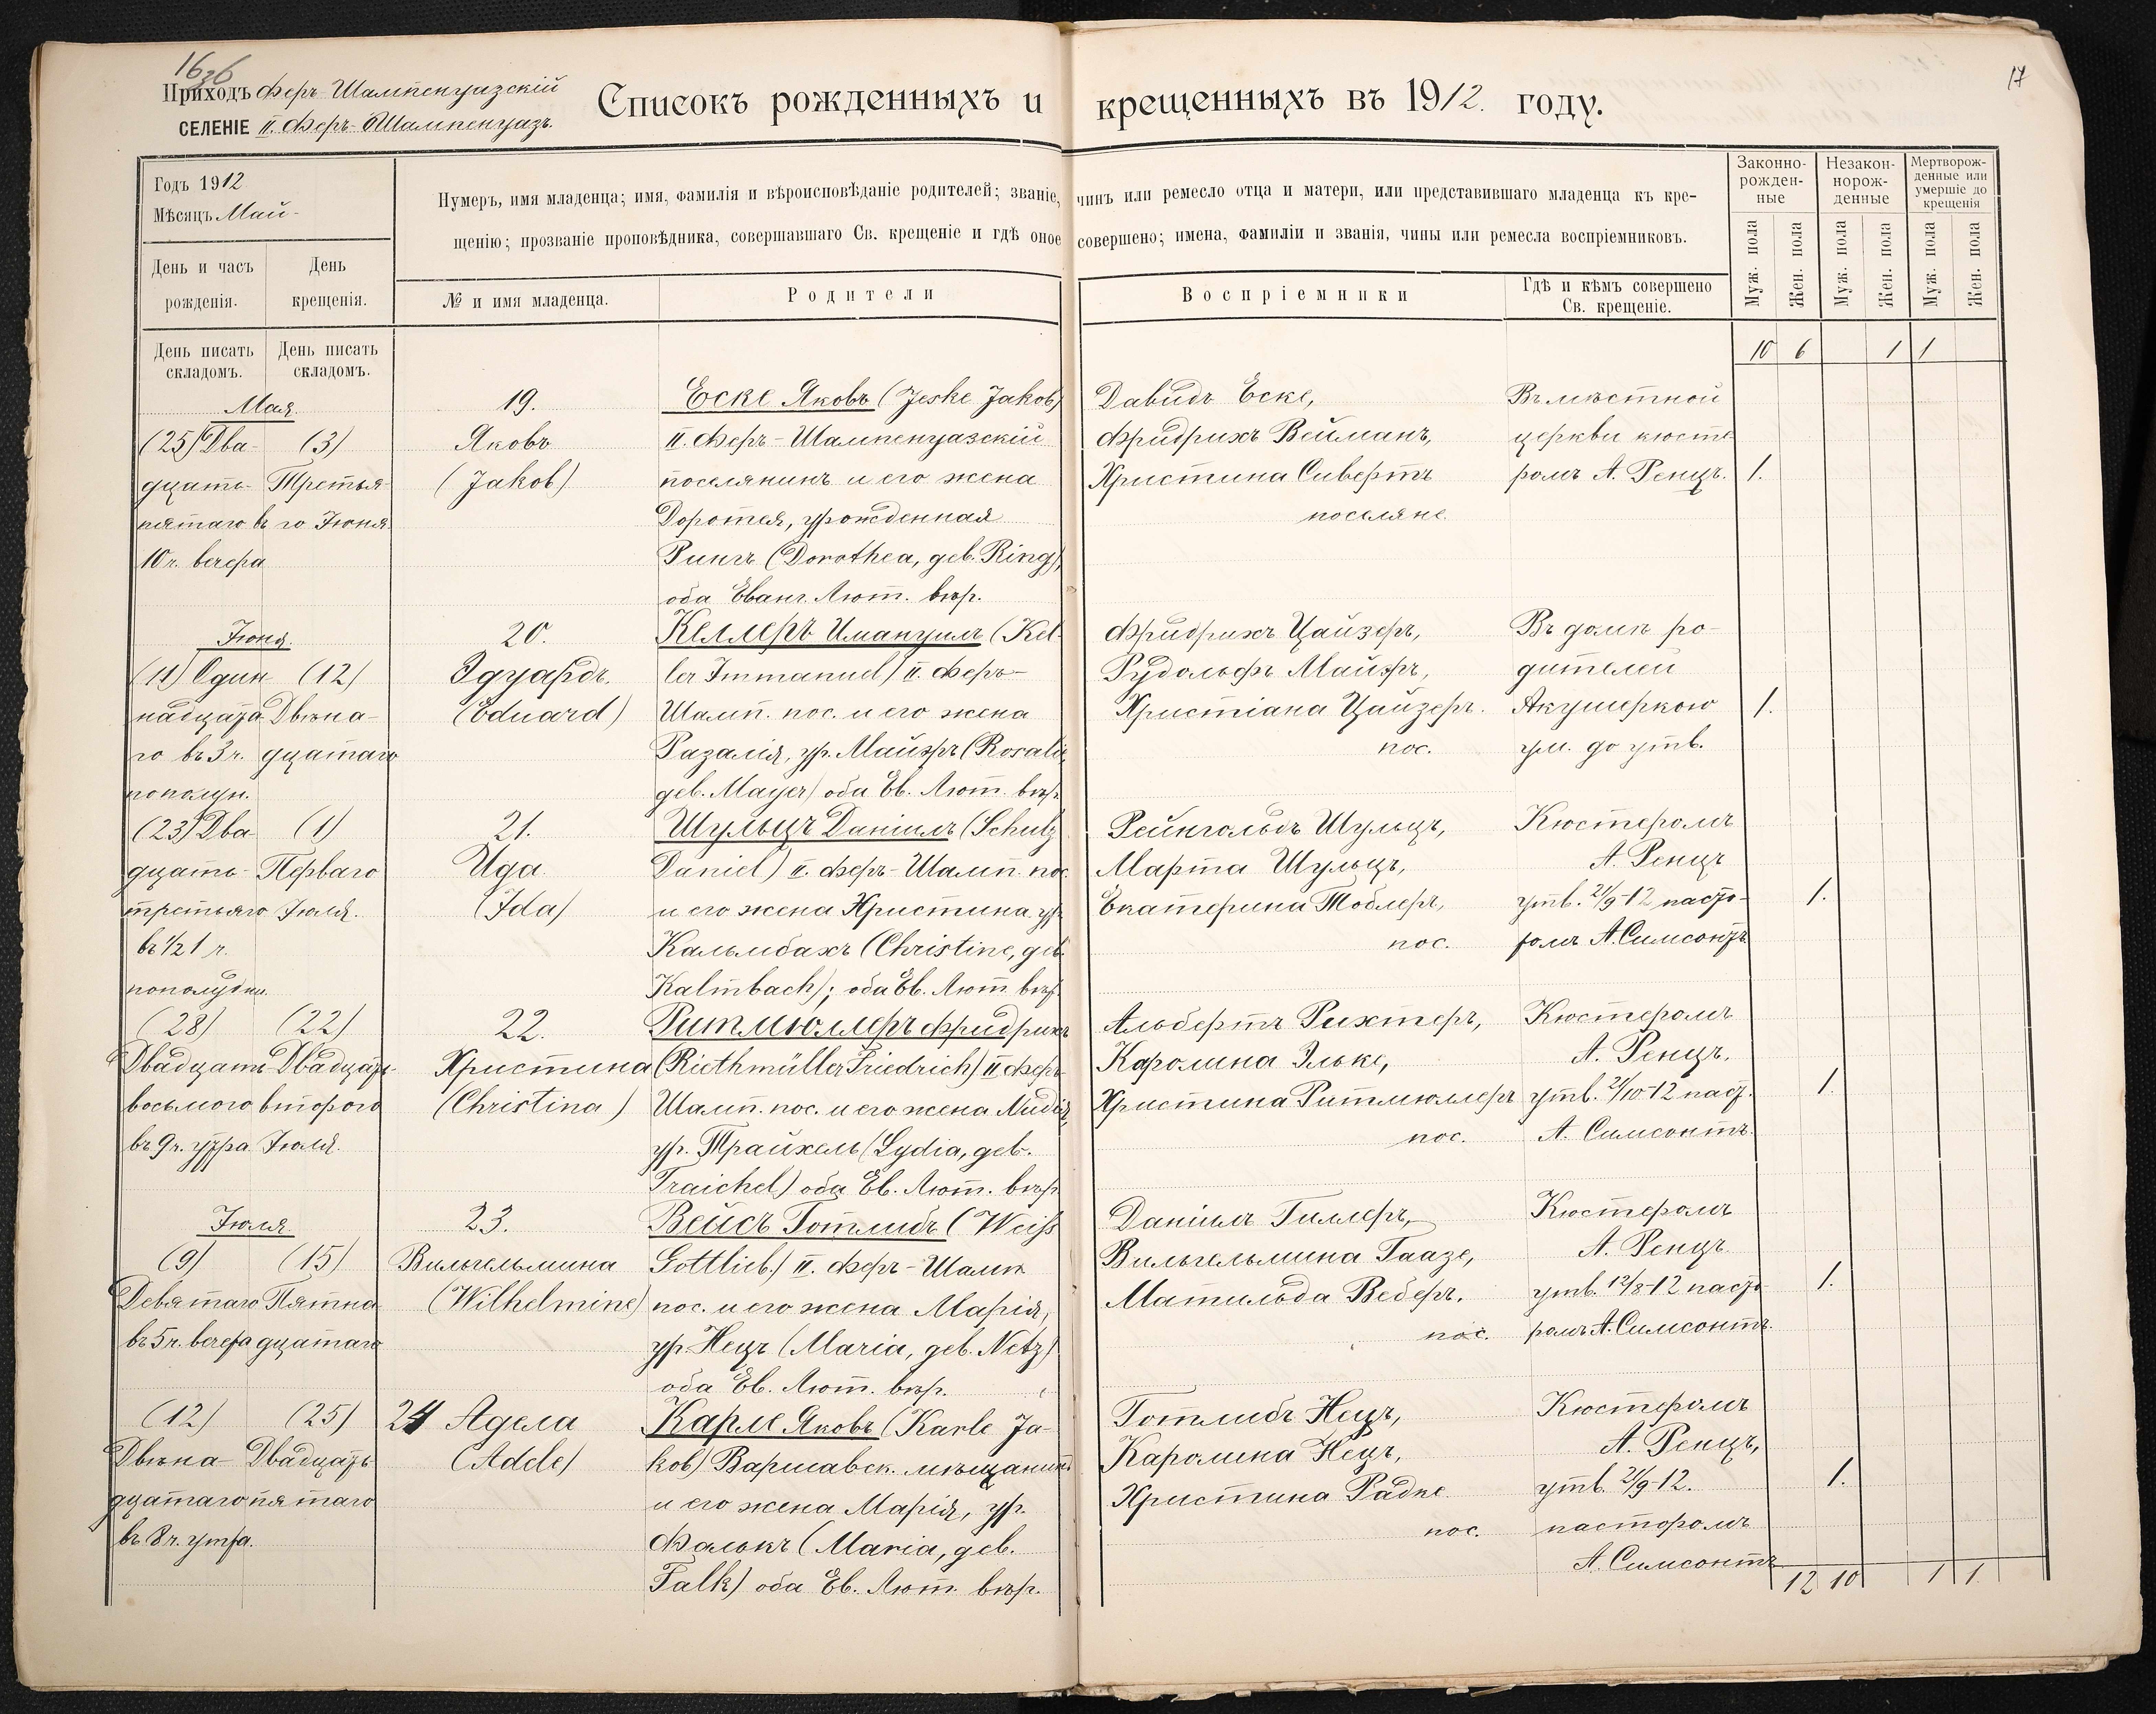 16 об
17
Приходъ Феръ-Шампенуазскій
СЕЛЕНІЕ II. Феръ-Шампенуазъ.
Списокъ рожденныхъ и крещенныхъ въ 1912. году.
Годъ 1912
Мѣсяцъ Май-
День и часъ рожденія.
День крещенія.
Нумеръ, имя младенца; имя, фамилія и вѣроисповѣданіе родителей; званіе, чинъ или ремесло отца и матери, или представившаго младенца къ кре-
щенію; прозваніе проповѣдника, совершавшаго Св. крещеніе и гдѣ оное совершено; имена, фамиліи и званія, чины или ремесла воспріемниковъ.
№ и имя младенца.
Родители
Воспріемники
Гдѣ и кѣмъ совершено
Св. крещеніе.
Законно-
рожден-
ные
Незакон-
норож-
денные
Мертворож-
денные или
умершіе до
крещенія
Муж. пола
Жен. пола
Муж. пола
Жен. пола
Муж. пола
Жен. пола
День писать
складомъ.
День писать
складомъ.
10 6 1 1
Мая.
(25) Два-
дцать-
пятаго въ
10 ч. вечера
(3)
Третья-
го Іюня.
19.
Яковъ
(Jakob)
Еске Яковъ (Jeske Jakob)
II. Феръ-Шампенуазскій
поселянинъ и его жена
Доротея, урожденная
Рингъ (Dorothea, geb. Ring),
оба Еванг. Лют. вѣр.
Давидъ Еске,
Фридрихъ Вейманъ,
Христина Сивертъ
поселяне.
Въ мѣстной
церкви кюсте-
ромъ А. Ренцъ.
1.
Іюня.
(11) Один
надцата
го въ 3 ч.
пополун.
(12)
Двѣна-
дцатаго
20.
Эдуардъ.
(Eduard)
Келлеръ Имануилъ (Kel-
ler Immanuel) II. Феръ-
Шамп. пос. и его жена
Разалія, ур. Майэръ (Rosalie,
geb. Mayer) оба Ев. Лют. вѣр.
Фридрихъ Цайзеръ,
Рудольфъ Майэръ,
Христіана Цайзеръ.
пос.
Въ домѣ ро-
дителей
Акушеркою
ум. до утв.
1.
(23) Два-
дцать-
третьяго
въ ½ 1 ч.
пополудни.
(1)
Перваго
Іюля.
21.
Ида
(Ida)
Шульцъ Даніилъ (Schulz
Daniel) II. Феръ-Шамп. пос.
и его жена Христина, ур.
Кальмбахъ (Christine, geb.
Kalmbach); оба Ев. Лют. вѣр.
Рейнгольдъ Шульцъ,
Марта Шульцъ,
Екатерина Тоблеръ,
пос.
Кюстеромъ
А. Ренцъ
утв. 21/9-12 пасто-
ромъ А. Симсонтъ
1.
(28)
Двадцать
восьмого
въ 9 ч. утра
(22)
Двадцать
второго
Іюля.
22.
Христина
(Christina)
Ритмюллеръ Фридрихъ
(Riethmüller Friedrich) II Феръ
Шамп. пос. и его жена Лидія,
ур. Трайхель (Lydia, geb.
Traichel) оба Ев. Лют. вѣр.
Альбертъ Рихтеръ,
Каролина Эльке,
Христина Ритмюллеръ
пос.
Кюстеромъ
А. Ренцъ.
утв. 21/10-12 паст.
А. Симсонтъ.
1.
Іюля.
(9)
Девятаго
въ 5 ч. вечера
(15)
Пятна
дцатаго
23.
Вильгельмина
(Wilhelmine)
Вейсъ Готлибъ (Weiß
Gottlieb.) II. Феръ-Шамп
пос. и его жена Марія,
ур. Нецъ (Maria, geb. Netz)
оба Ев. Лют. вѣр.
Даніилъ Гиллеръ,
Вильгельмина Гаазе,
Матильда Веберъ.
пос.
Кюстеромъ
А. Ренцъ.
утв. 12/8-12 пасто
ромъ А. Симсонтъ.
1.
(12)
Двѣна-
дцатаго
въ 8 ч. утра.
(25)
Двадцать
пятаго
24 Адела
(Adele)
Карле Яковъ (Karle Ja-
kob) Варшавск. мѣщанинъ
и его жена Марія, ур.
Фалькъ (Maria, geb.
Falk) оба Ев. Лют. вѣр.
Готлибъ Нецъ,
Каролина Нецъ,
Христина Радке
пос.
Кюстеромъ
А. Ренцъ,
утв. 21/9-12.
пасторомъ
А. Симсонтъ
1.
12 10 1 1